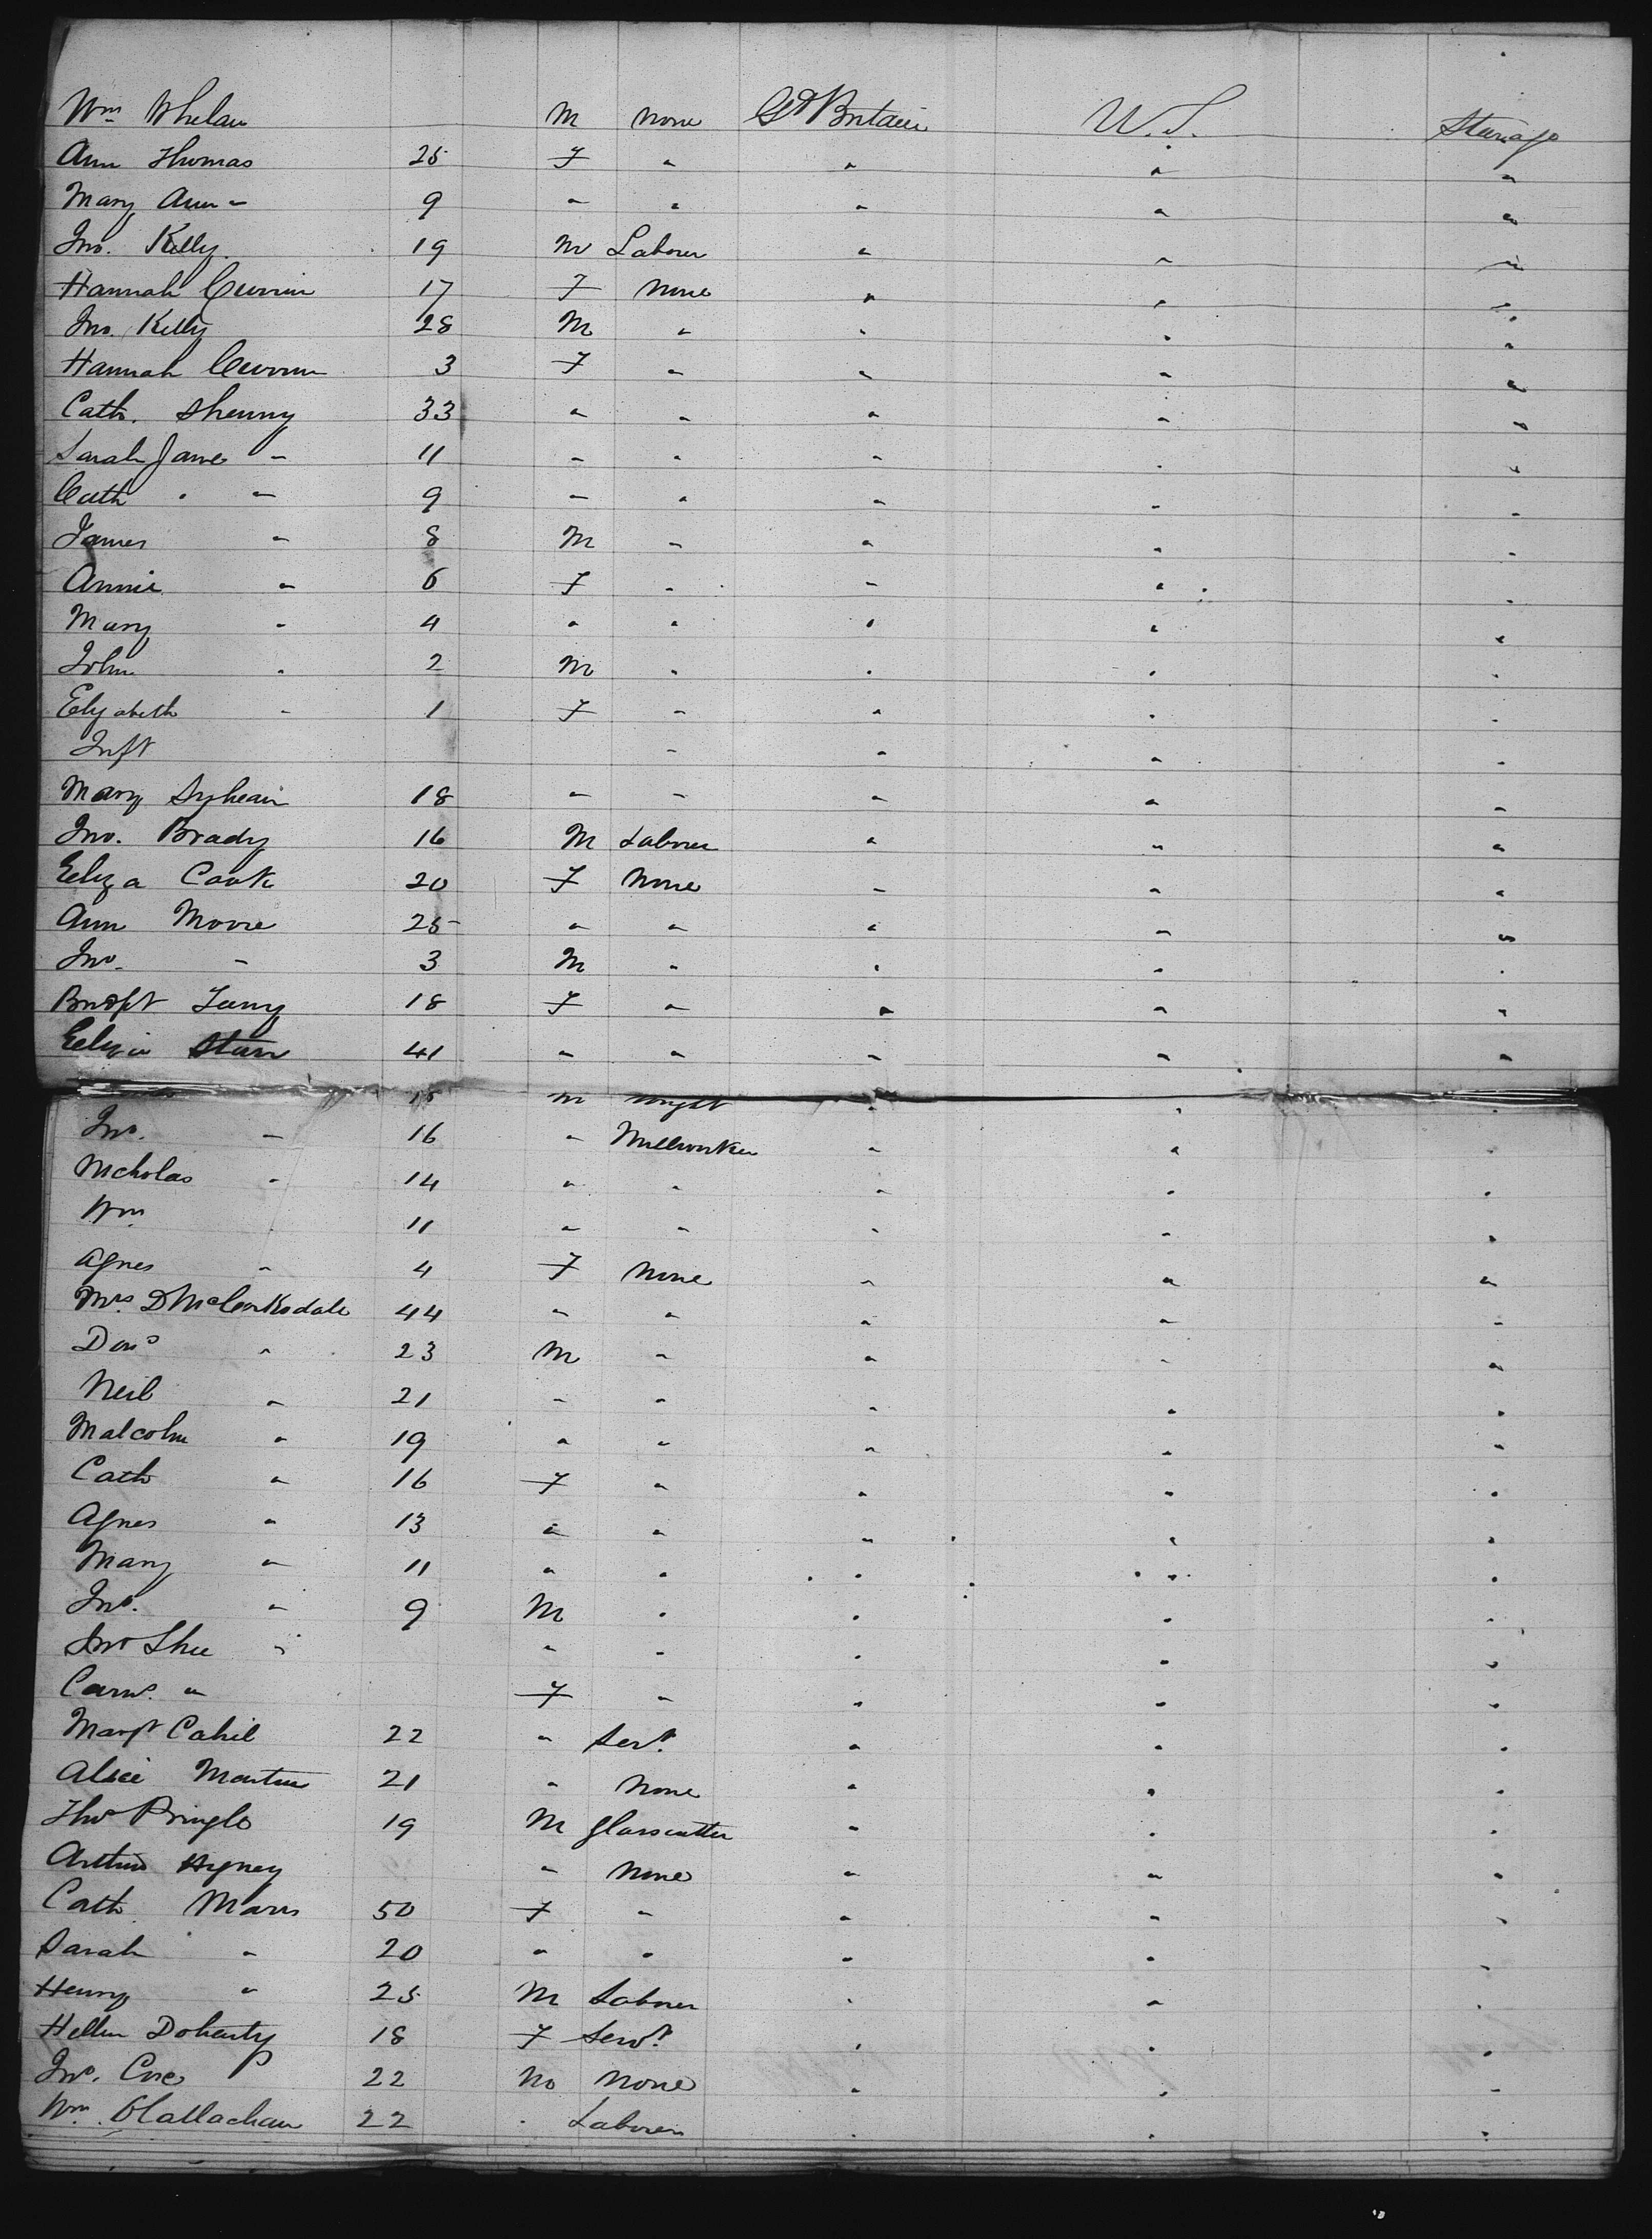 Wm Whelan M none Gt Britain U.S. Steerage
Ann Thomas 25 F " " " "
Mary Ann " 9 " " " " "
Jno. Kelly 19 M Laborer " " "
Hannah 17 F none " " "
Jno. Kelly 28 M " " " "
Hannah 3 F " " " "
Cath. 33 " " " " "
Sarah Jane " 11 " " " " "
Cath " " 9 " " " " "
James " 8 M " " " "
Annie " 6 F " " " "
Mary " 4 " " " " "
John " 2 M " " " "
Elizabeth " 1 F " " " "
Inft " " " "
Mary 18 " " " " "
Jno. Brady 16 M Laborer " " "
Eliza Cook 20 F None " " "
Ann Moore 25 " " " " "
Jno. " 3 M " " " "
Bridgt 18 F " " " "
Eliza Starr 41 " " " " "
M " " "
Jno. " 16 " Millworker " " "
Nicholas " 14 " " " " "
Wm " 11 " " " " "
Agnes " 4 F None " " "
Mrs. D 44 " " " " "
" 23 M " " " "
Neil " 21 " " " " "
Malcolm " 19 " " " " "
Cath " 16 F " " " "
Agnes " 13 " " " " "
Mary " 11 " " " " "
Jno. " 9 M " " " "
" " " " " "
" F " " " "
Margt Cahil 22 " Servt. " " "
Alice Martin 21 " None " " "
Thos Pringle 19 M glasscutter " " "
Arthur " None " " "
Cath 50 F " " " "
Sarah " 20 " " " " "
Henry " 25 M Laborer " " "
Hellen Doherty 18 F Servt. " " "
Jno. 22 M None " " "
Wm. OCallachan 22 " Laborer " " "